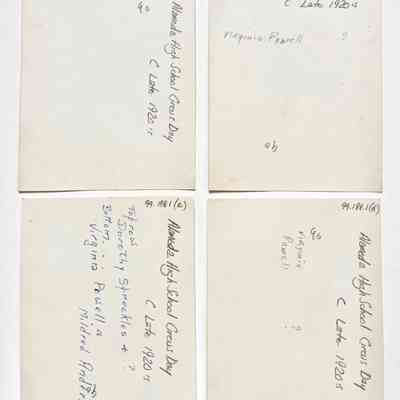 Alameda High School Circus Day
C Late 1920's
90
C Late 1920's
Virginia Powell ?
99.181(c)
Alameda High School Circus Day
C Late 1920's
Top row
Dorothy Spreckles & ?
Bottom,
Virginia Powell &
Mildred
Alameda High School Circus Day
C Late 1920's
90
Virginia
Powell
?